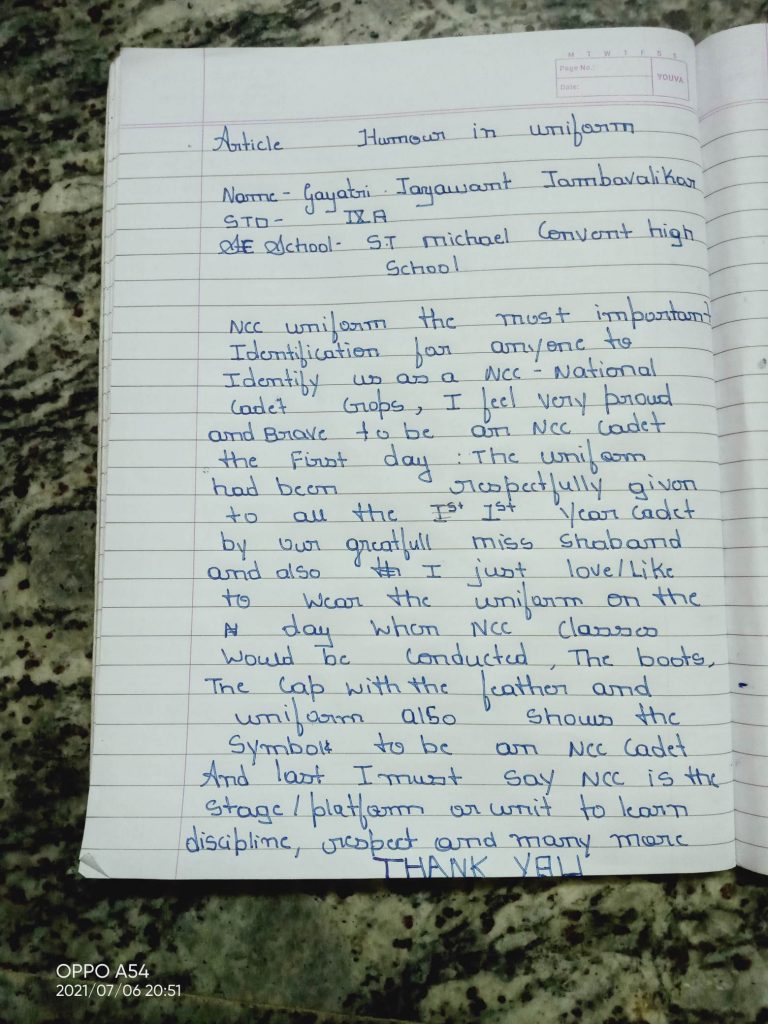 M T W T F S S
Page No.:
YOUVA
Date:
Article Humour in uniform
Name - Gayatri . Jayawant Jambavalikar
STD - IX.A
School - S.T michael Convent high
School
NCC uniform the most important
Identification for anyone to
Identify us as a NCC - National
Cadet Crops, I feel very proud
and Brave to be an NCC cadet
the First day : The uniform
had been respectfully given
to all the Ist Year cadet
by our greatfull miss Shaband
and also I just love/Like
to wear the uniform on the
day when NCC classes
would be conducted, The boots,
The Cap with the feather and
uniform also shows the
Symbol to be an NCC Cadet
And last I must say NCC is the
Stage / platform or unit to learn
discipline, respect and many more
THANK YOU
OPPO A54
2021/07/06 20:51